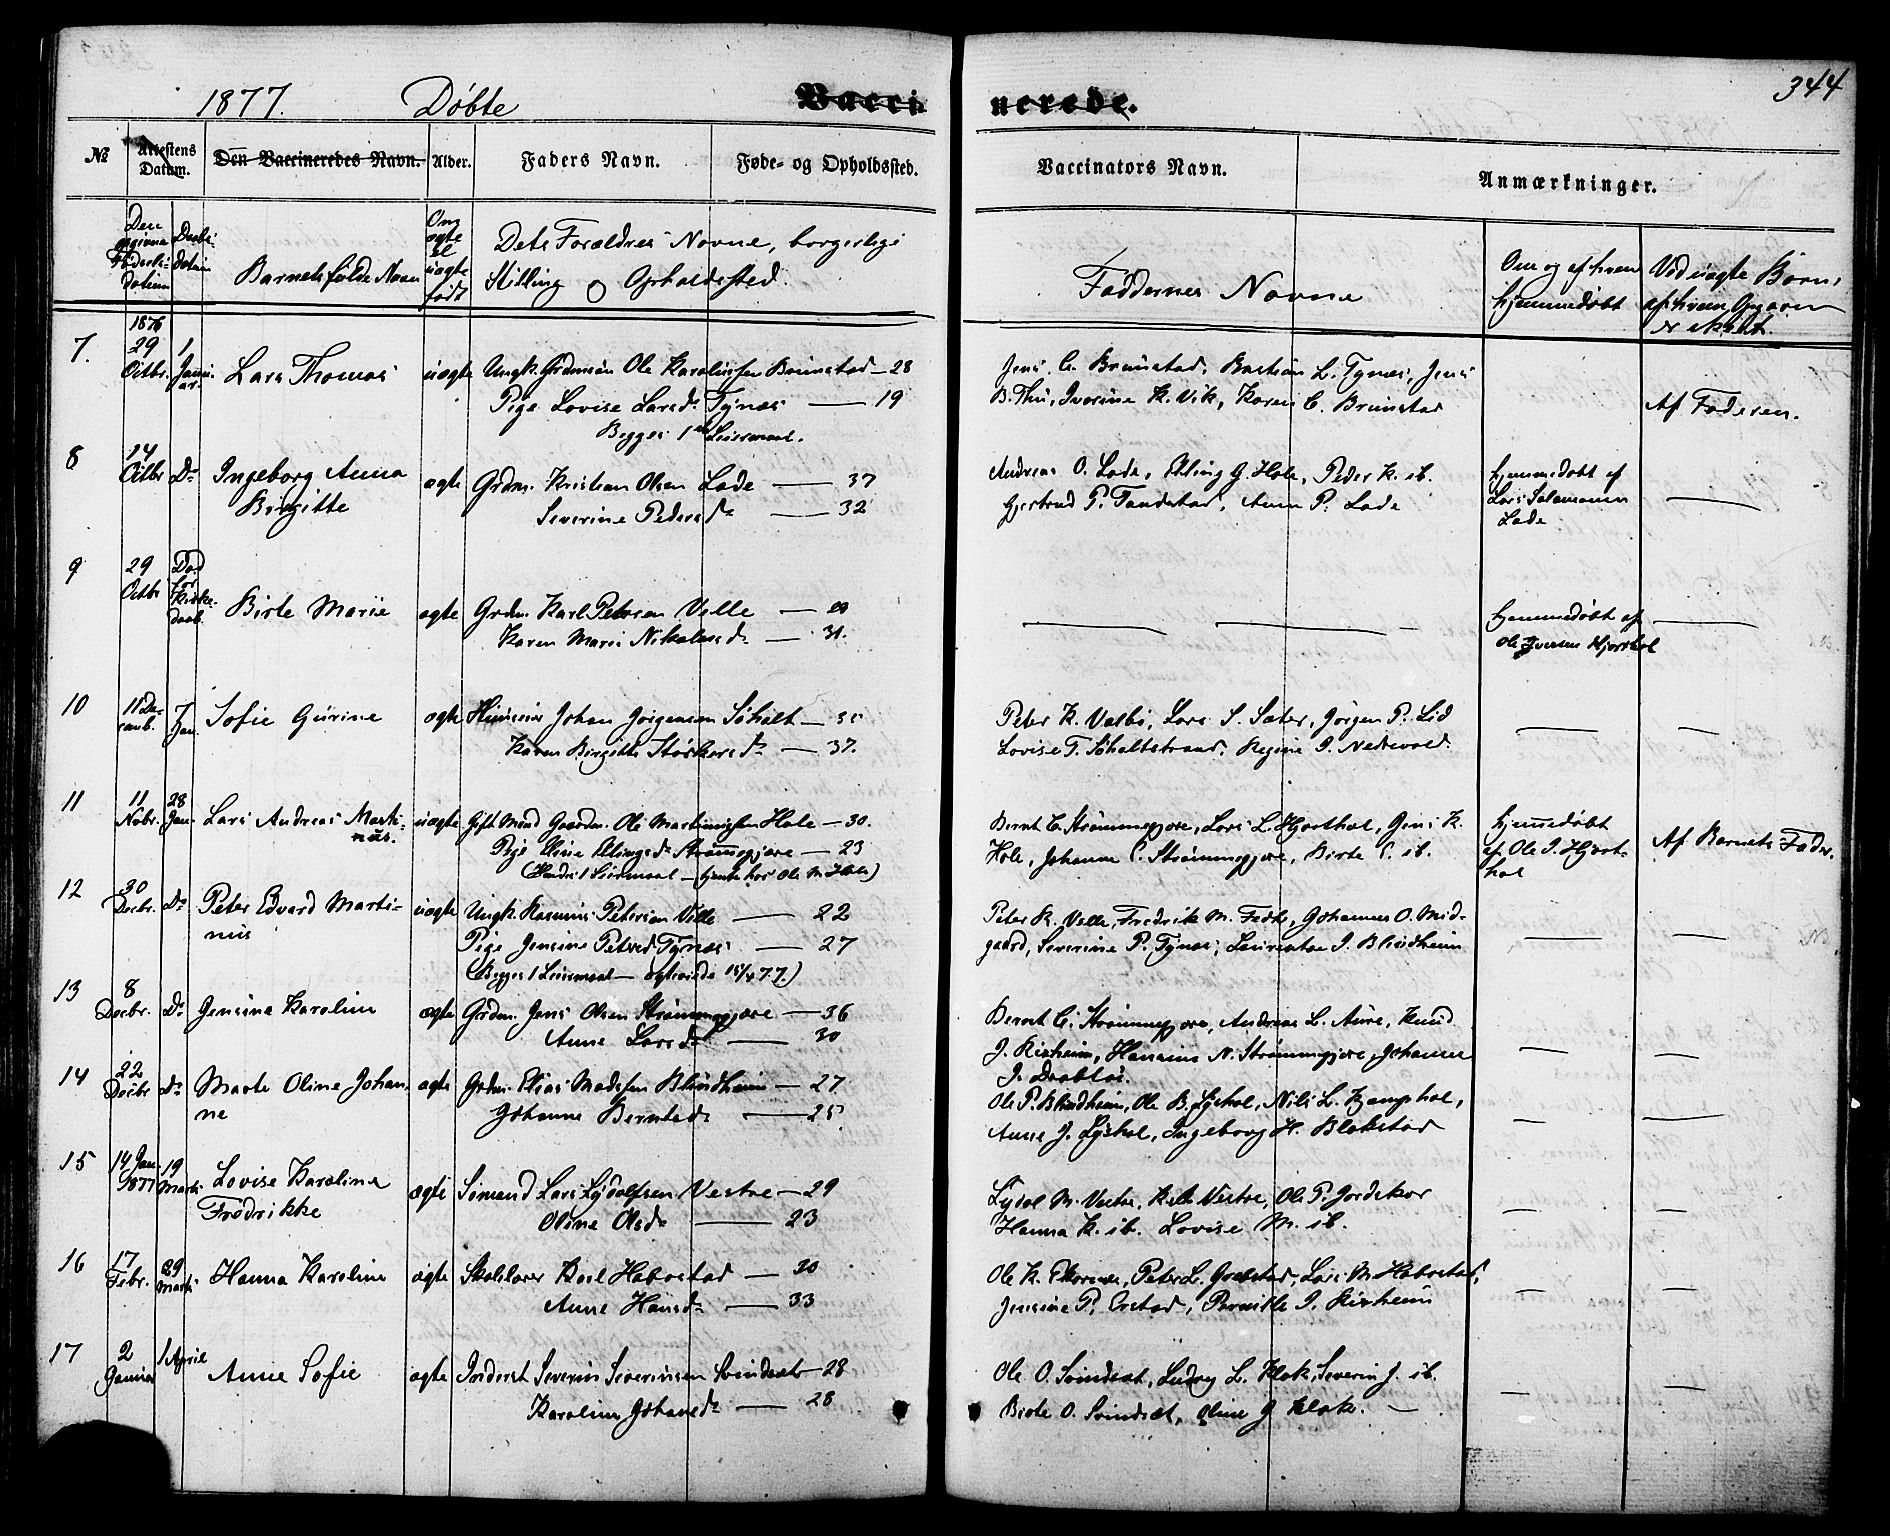 344
1877. Døbte Vacci nerede.
No
Attestens Datum.
Den Vaccineredes Navn.
Alder.
Faders Navn.
Føde- og Opholdssted.
Vaccinators Navn.
Anmærkninger.
Den opgivne Fødsels datum
Daabs datum
Barnets fulde Navn
Om ægte el uægte født
Dets Forældres Navne, borgerlige
Stilling og Opholdssted.
Faddernes Navne
Om og af hvem
hjemmedøbt
Ved uægte Børn,
af hvem Opgaven
er skeet.
7. 1876 29 Octbr. 1 Januar. Lars Thomas uægte Ungk. Grdmsøn Ole Karolussen Brunstad — 28
Pige Lovise Larsdr Tynæs — 19
Begges 1ste Leiermaal.
Jens C. Brunstad, Bastian L. Tynæs, Jens
B. Thu, Iversine K. Vik, Karen C. Brunstad
Af Faderen.
8 14 Octbr Do Ingeborg Anna
Birgitte
ægte Grdm. Kristian Olsen Lade — 37
Severine Pedersdr — 32
Andreas O. Lade, Elling G. Hole, Peder K. ib.
Gjertrud P. Tandstad, Anna P. Lade
hjemmedøbt af
Lars Salamonsen
Lade
9 29 Octbr Død før Kirkedaab. Birte Marie ægte Grdm. Karl Petersen Velle —
Karen Marie Nikolaisdr — 31.
hjemmedøbt af
Ole Iversen Hjorthol
10 11 Decemb. 7 Jan. Sofie Gurine ægte Huusm Johan Jørgensen Søholt — 35
Karen Birgitte Størkersdr — 37.
Peter K. Valbø, Lars S. Sæter, Jørgen P. Lid
Lovise T. Søholtstrand, Regine I. Nedrevold.
11 11 Nobr. 28 Jan. Lars Andreas Marti-
nus.
uægte Gift Mand Gaardm. Ole Martinussen Hole — 30.
Pige Eline Ellingsdr Strømmegjære — 23
(Hendes 1 Leiermaal — tjente hos Ole M. Hole)
Bernt E. Strømmegjære, Lars L. Hjorthol, Jens K.
Hole, Johanne E. Strømmegjære, Birte E. ib.
hjemmedøbt
af Ole I. Hjort-
hol
Af Barnets Fader.
12 30 Decbr. Do Peter Edvard Marti-
nus
uægte Ungk. Rasmus Petersen Velle — 22
Pige Jensine Petersdr Tynæs — 27
(Begges 1 Leiermaal — ægteviede 15/4 77)
Peter K. Velle, Fredrik M. Fedt, Johannes O. Mid-
gaard, Severine P. Tynæs, Laurentse I. Blindheim
13 8 Decbr. Do Jensine Karoline ægte Grdm. Jens Olsen Strømmegjære — 36
Anne Larsdr — 30
Bernt E. Strømmegjære, Andreas L. Aure, Knud
J. Riksheim, Hansine N. Strømmegjære, Johanne
J. Drabløs.
14 22 Decbr Do Marte Oline Johan-
ne
ægte Grdm. Elias Madssen Blindheim — 27
Johanne Berntsdr — 25
Ole P. Blindheim, Ole B. Lyshol, Nils L. Kjempehol,
Anne J. Lyshol, Ingeborg H. Blakstad
15 14 Jan. 1877 19 Marts Lovise Karoline
Fredrikke
ægte Sømand Lars Lydolfsen Vestre — 29
Oline Olsdr — 23
Lydol M. Vestre, Ketil Vestre, Ole P. Jordskar
Hanna K. ib. Lovise M. ib.
16 17 Febr. 29 Marts Hanna Karoline ægte Skolelærer Karl Habostad — 30
Anne Hansdr — 33
Ole K. Ekornæs, Peter L. Grebstad, Lars M. Habostad,
Jensine P. Erstad, Pernille I. Riksheim
17 2 Januar 1 April Anne Sofie ægte Inderst Severin Severinsen Svindset — 28
Karoline Johansdr — 28
Ole O. Svindset, Ludvig L. Klok, Severin J. ib.
Birte O. Svindset, Oline J Klok.